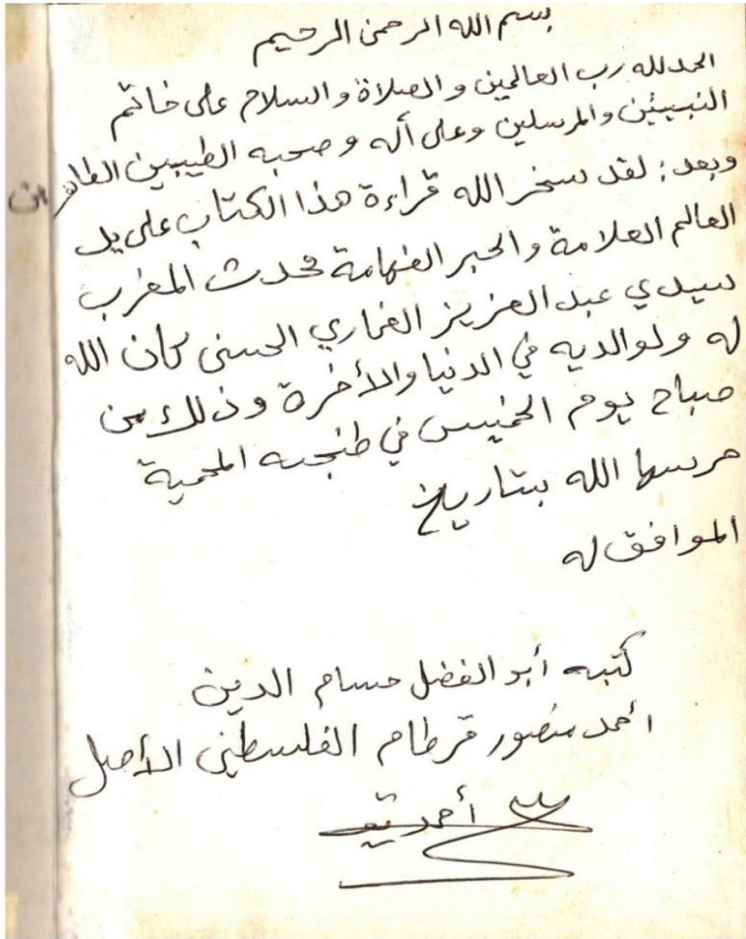 بسم الله الرحمن الرحيم
الحمد لله رب العالمين والصلاة والسلام على خاتم
النبيئين والمرسلين وعلى آله وصحبه الطيبين الطاهرين
وبعد: لقد سخر الله قراءة هذا الكتاب على يد
العالم العلامة والحبر الفهامة محدث المغرب
سيدي عبد العزيز الغماري الحسني كان الله
له ولوالديه في الدنيا والأخرة وذلك من
صباح يوم الخميس في طنجه المحمية
حرسها الله بتاريخ
الموافق له
كتبه أبو الفضل حسام الدين
أحمد منصور قرطام الفلسطيني الأصل
أحمد